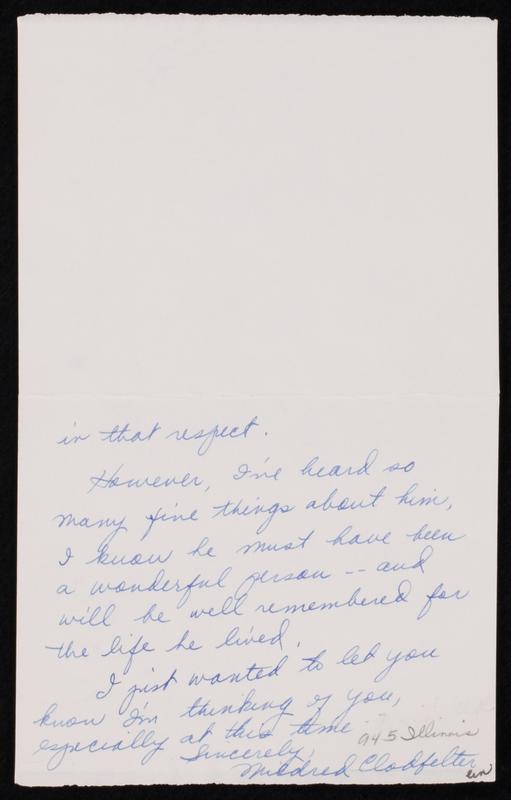 in that respect.
However, I've heard so
many fine things about him,
I know he must have been
a wonderful person -- and
will be well remembered for
the life he lived.
I just wanted to let you
know I'm thinking of you,
especially at this time
945 Illinois
Sincerely,
Mildred Clodfelter